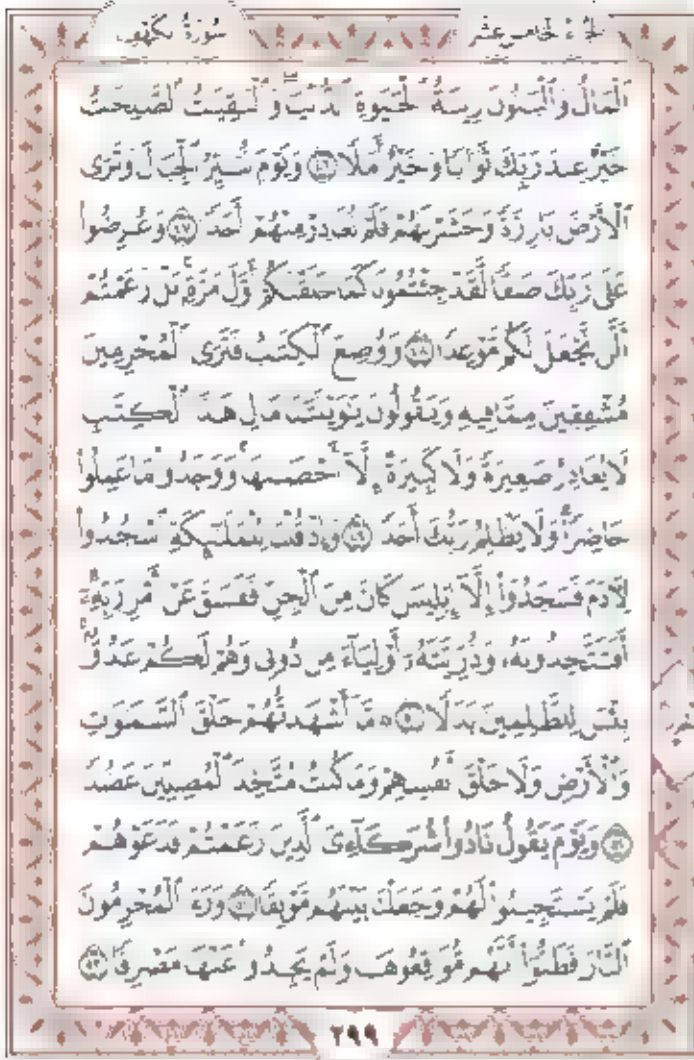 الجزء الخامس عشر
سورة الكهف
الْمَالُ وَالْبَنُونَ زِينَةُ الْحَيَوٰةِ الدُّنْيَا ۖ وَالْبَٰقِيَٰتُ الصَّٰلِحَٰتُ
خَيْرٌ عِندَ رَبِّكَ ثَوَابًا وَخَيْرٌ أَمَلًا ﴿٤٦﴾ وَيَوْمَ نُسَيِّرُ الْجِبَالَ وَتَرَى
الْأَرْضَ بَارِزَةً وَحَشَرْنَٰهُمْ فَلَمْ نُغَادِرْ مِنْهُمْ أَحَدًا ﴿٤٧﴾ وَعُرِضُوا
عَلَىٰ رَبِّكَ صَفًّا لَّقَدْ جِئْتُمُونَا كَمَا خَلَقْنَٰكُمْ أَوَّلَ مَرَّةٍ ۚ بَلْ زَعَمْتُمْ
أَلَّن نَّجْعَلَ لَكُم مَّوْعِدًا ﴿٤٨﴾ وَوُضِعَ الْكِتَٰبُ فَتَرَى الْمُجْرِمِينَ
مُشْفِقِينَ مِمَّا فِيهِ وَيَقُولُونَ يَٰوَيْلَتَنَا مَالِ هَٰذَا الْكِتَٰبِ
لَا يُغَادِرُ صَغِيرَةً وَلَا كَبِيرَةً إِلَّا أَحْصَىٰهَا ۚ وَوَجَدُوا مَا عَمِلُوا
حَاضِرًا ۗ وَلَا يَظْلِمُ رَبُّكَ أَحَدًا ﴿٤٩﴾ وَإِذْ قُلْنَا لِلْمَلَٰٓئِكَةِ اسْجُدُوا
لِـَٔادَمَ فَسَجَدُوٓا إِلَّآ إِبْلِيسَ كَانَ مِنَ الْجِنِّ فَفَسَقَ عَنْ أَمْرِ رَبِّهِۦٓ ۗ
أَفَتَتَّخِذُونَهُۥ وَذُرِّيَّتَهُۥٓ أَوْلِيَآءَ مِن دُونِى وَهُمْ لَكُمْ عَدُوٌّۢ ۚ
بِئْسَ لِلظَّٰلِمِينَ بَدَلًا ﴿٥٠﴾ ۞ مَّآ أَشْهَدتُّهُمْ خَلْقَ السَّمَٰوَٰتِ
وَالْأَرْضِ وَلَا خَلْقَ أَنفُسِهِمْ وَمَا كُنتُ مُتَّخِذَ الْمُضِلِّينَ عَضُدًا
﴿٥١﴾ وَيَوْمَ يَقُولُ نَادُوا شُرَكَآءِىَ الَّذِينَ زَعَمْتُمْ فَدَعَوْهُمْ
فَلَمْ يَسْتَجِيبُوا لَهُمْ وَجَعَلْنَا بَيْنَهُم مَّوْبِقًا ﴿٥٢﴾ وَرَءَا الْمُجْرِمُونَ
النَّارَ فَظَنُّوٓا أَنَّهُم مُّوَاقِعُوهَا وَلَمْ يَجِدُوا عَنْهَا مَصْرِفًا ﴿٥٣﴾
٢٩٩